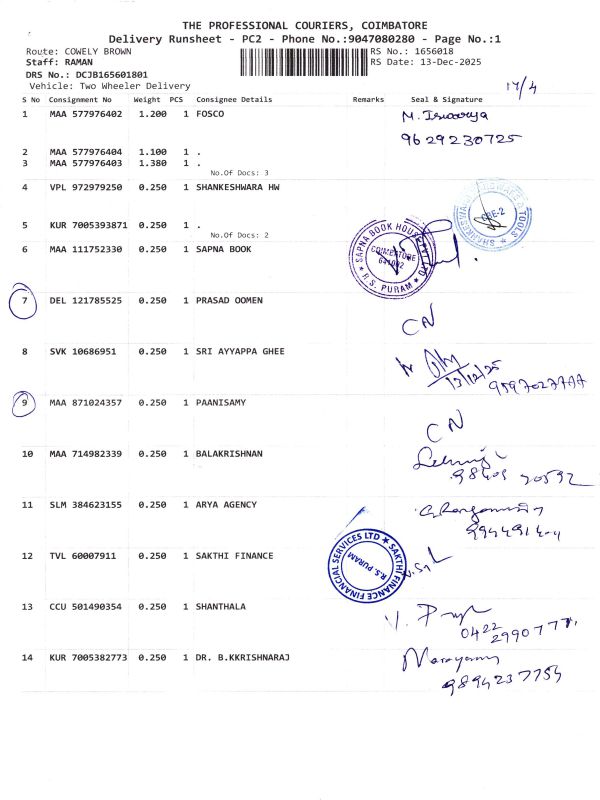 THE PROFESSIONAL COURIERS, COIMBATORE
Delivery Runsheet - PC2 - Phone No.:9047080280 - Page No.:1
Route: COWELY BROWN RS No.: 1656018
Staff: RAMAN RS Date: 13-Dec-2025
DRS No.: DCJB165601801
Vehicle: Two Wheeler Delivery
17/4
S No Consignment No Weight PCS Consignee Details Remarks Seal & Signature
1 MAA 577976402 1.200 1 FOSCO M. Iswarya
9629230725
2 MAA 577976404 1.100 1 .
3 MAA 577976403 1.380 1 .
No.Of Docs: 3
4 VPL 972979250 0.250 1 SHANKESHWARA HW
CBE-2
5 KUR 7005393871 0.250 1 .
No.Of Docs: 2
6 MAA 111752330 0.250 1 SAPNA BOOK
SAPNA BOOK HOUSE PVT LTD
COIMBATORE
641002
R.S. PURAM
7 DEL 121785525 0.250 1 PRASAD OOMEN
CN
8 SVK 10686951 0.250 1 SRI AYYAPPA GHEE
13/12/25
9 MAA 871024357 0.250 1 PAANISAMY
CN
10 MAA 714982339 0.250 1 BALAKRISHNAN
11 SLM 384623155 0.250 1 ARYA AGENCY
12 TVL 60007911 0.250 1 SAKTHI FINANCE
SAKTHI FINANCE FINANCIAL SERVICES LTD
R.S. PURAM
13 CCU 501490354 0.250 1 SHANTHALA
0422
14 KUR 7005382773 0.250 1 DR. B.KKRISHNARAJ
9894237754